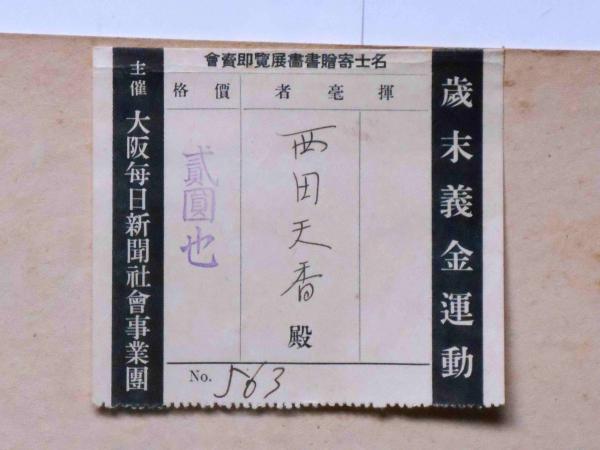 名士寄贈書畵展覽即賣會
歲末義金運動
揮毫者
西田天香殿
價格
貳圓也
No. 563
主催 大阪每日新聞社會事業團